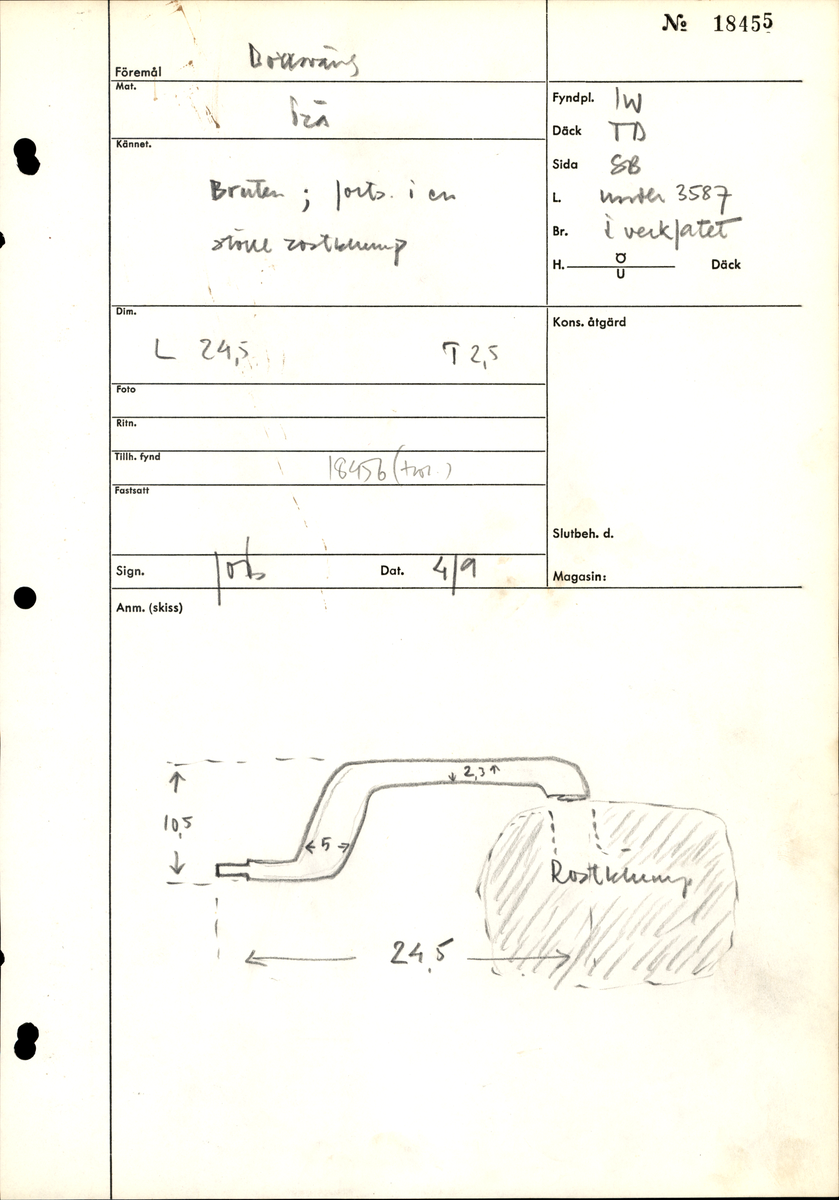 № 18455
Föremål Borrsväng
Mat. Trä
Kännet. Bruten ; forts. i en
större rostklump
Fyndpl. IW
Däck TD
Sida SB
L. under 3587
Br. i verkfatet
H. Ö U Däck
Dim.
L 24,5 T 2,5
Foto
Ritn.
Tillh. fynd 18456
Fastsatt
Kons. åtgärd
Slutbeh. d.
Sign. Dat. 4/9
Magasin:
Anm. (skiss)
2,3
10,5
5
Rostklump
24,5